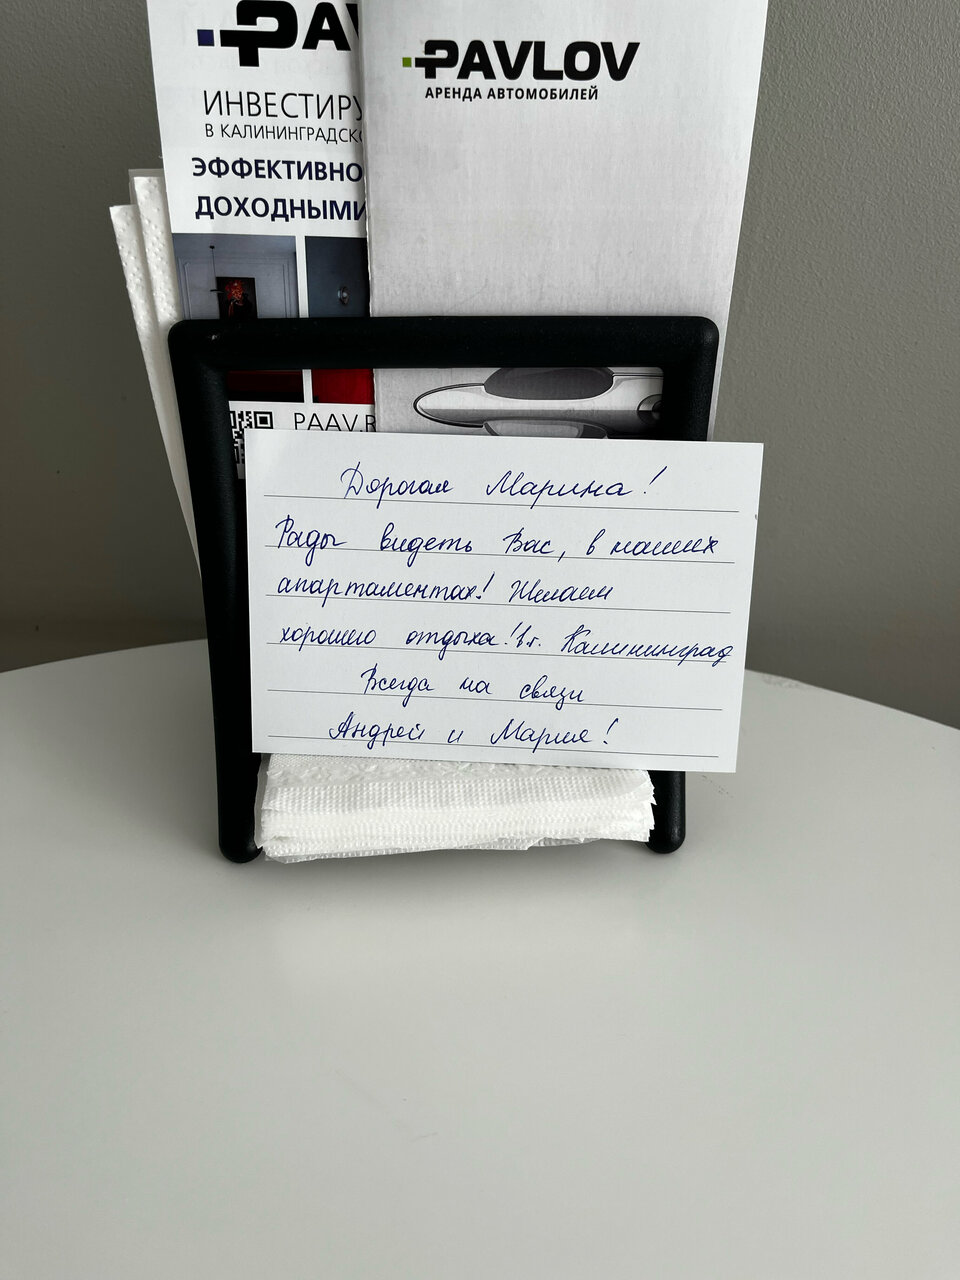 PAV
ИНВЕСТИРУ
В КАЛИНИНГРАДСКО
ЭФФЕКТИВНО
ДОХОДНЫМИ
PAAV.R
PAVLOV
АРЕНДА АВТОМОБИЛЕЙ
Дорогая Марина!
Рады видеть Вас, в наших
апартаментах! Желаем
хорошего отдыха! в г. Калининград
Всегда на связи
Андрей и Мария!